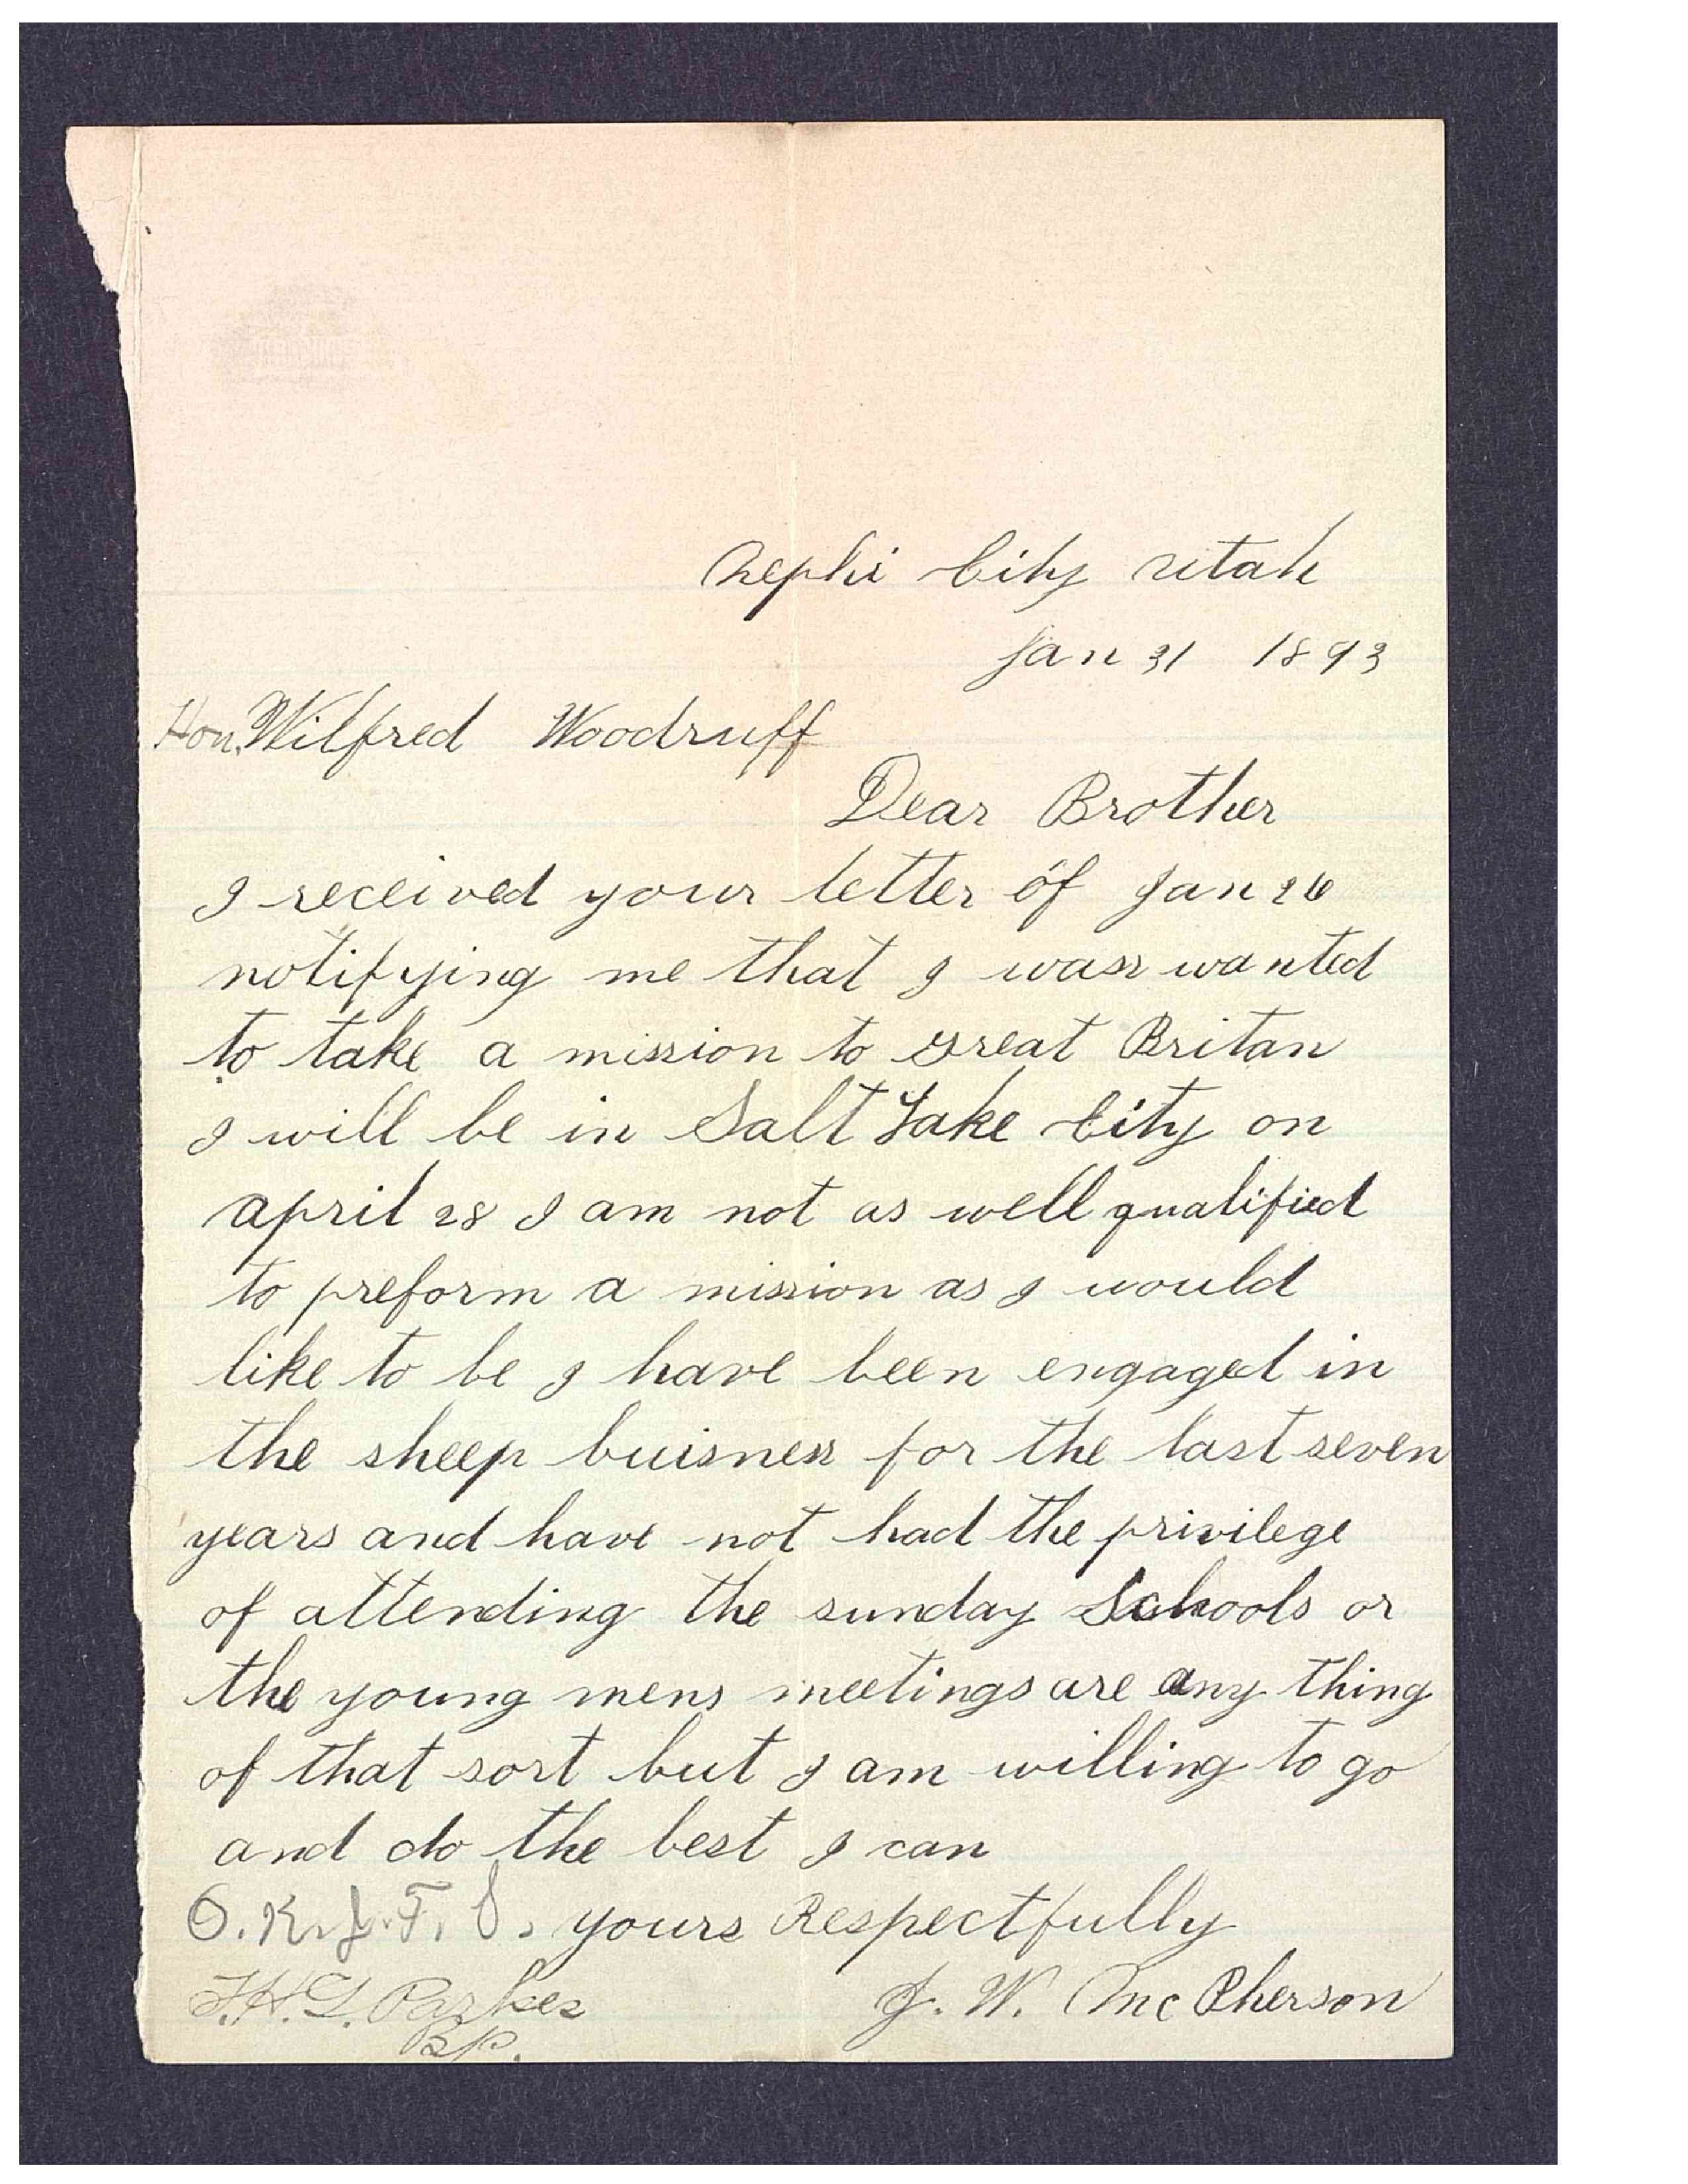 Nephi City Utah
Jan 31 1893
Hon. Wilfred Woodruff
Dear Brother
I received your letter of Jan 26
notifying me that I wass wanted
to take a mission to Great Britan
I will be in Salt Lake City on
april 28 I am not as well qualified
to preform a mission as I would
like to be I have been engaged in
the sheep buisness for the last seven
years and have not had the privilege
of attending the sunday Schools or
the young mens meetings are any thing
of that sort but I am willing to go
and do the best I can
O.K. J. F. S. yours Respectfully
T.H.G. Parkes J. W. McPherson
BP.